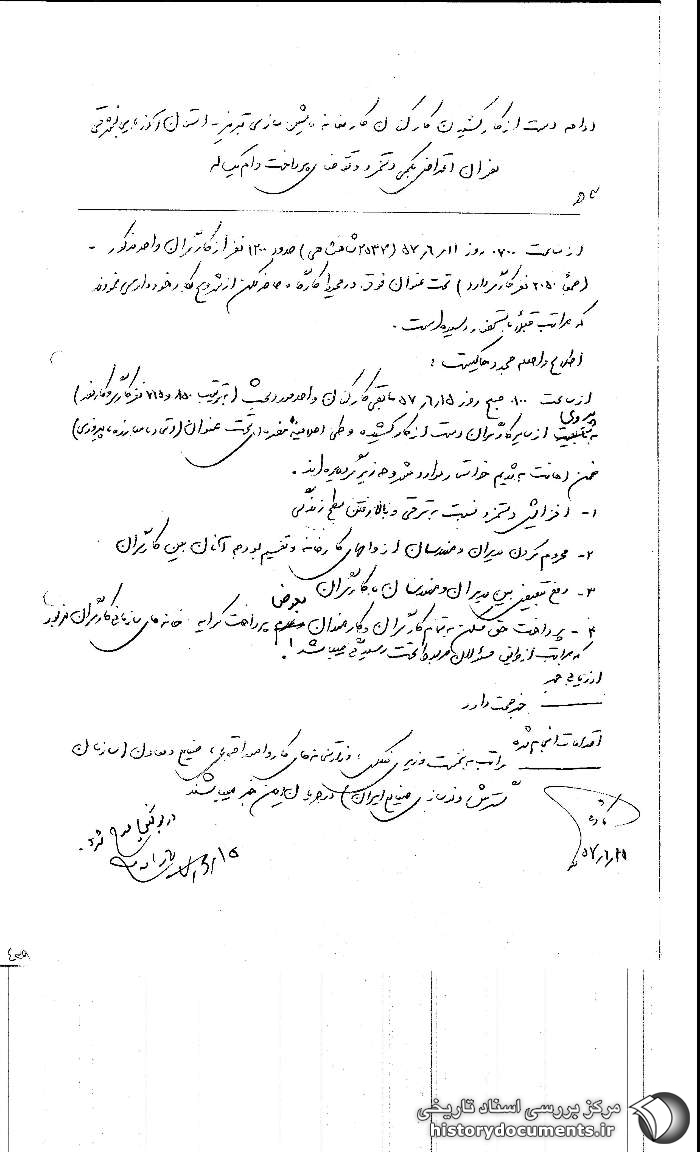 ادامه دست از کار کشیدن کارکنان کارخانه ماشین سازی تبریز - استان آذربایجان شرقی
دستمزد و تقاضای پرداخت وام
از ساعت ۰۷۰۰ روز ۱۱/۶/۵۷ (۲۵۳۷ شاهنشاهی) حدود ۱۲۰۰ نفر از کارگران واحد مذکور -
(جمعاً ۲۰۵۰ نفر کارگر دارد) تحت عنوان فوق در محیط کارگاه حاضر لکن از شروع بکار خودداری نمودند
که مراتب قبلاً باستحضار رسیده است.
اطلاع واصله مجدد حاکیست:
از ساعت ۸۰۰ صبح روز ۱۵/۶/۵۷ مابقی کارکنان واحد مورد بحث (بترتیب ۸۵۰ و ۷۱۵ نفر کارگر و کارمند)
پیروی
از سایر کارگران دست از کار کشیده و طی اعلامیه تحت عنوان (اتحاد، مبارزه، پیروزی)
ضمن اهانت به تقدیم خواستار موارد مشروحه زیر گردیده اند.
۱- افزایش دستمزد نسبت به ترقی و بالا رفتن سطح زندگی
۲- محروم کردن مدیران و مهندسان از وامهای کارخانه و تقسیم بودجه آنان بین کارگران
۳- رفع تبعیض بین مدیران و مهندسان با کارگران
بعوض
۴- پرداخت حق مسکن به تمام کارگران و کارمندان پرداخت کرایه خانه های سازمانی کارگران مزبور
که مراتب از طرف مسئولان مربوط تحت رسیدگی میباشد.
ارزیابی خبر
خبر صحت دارد
اقدامات انجام شده
مراتب به نخست وزیری، وزارتخانه های کار و امور اجتماعی، صنایع و معادن (سازمان
گسترش و نوسازی صنایع ایران) در جریان این خبر میباشند
در بولتن
۱۵
مرکز بررسی اسناد تاریخی
historydocuments.ir